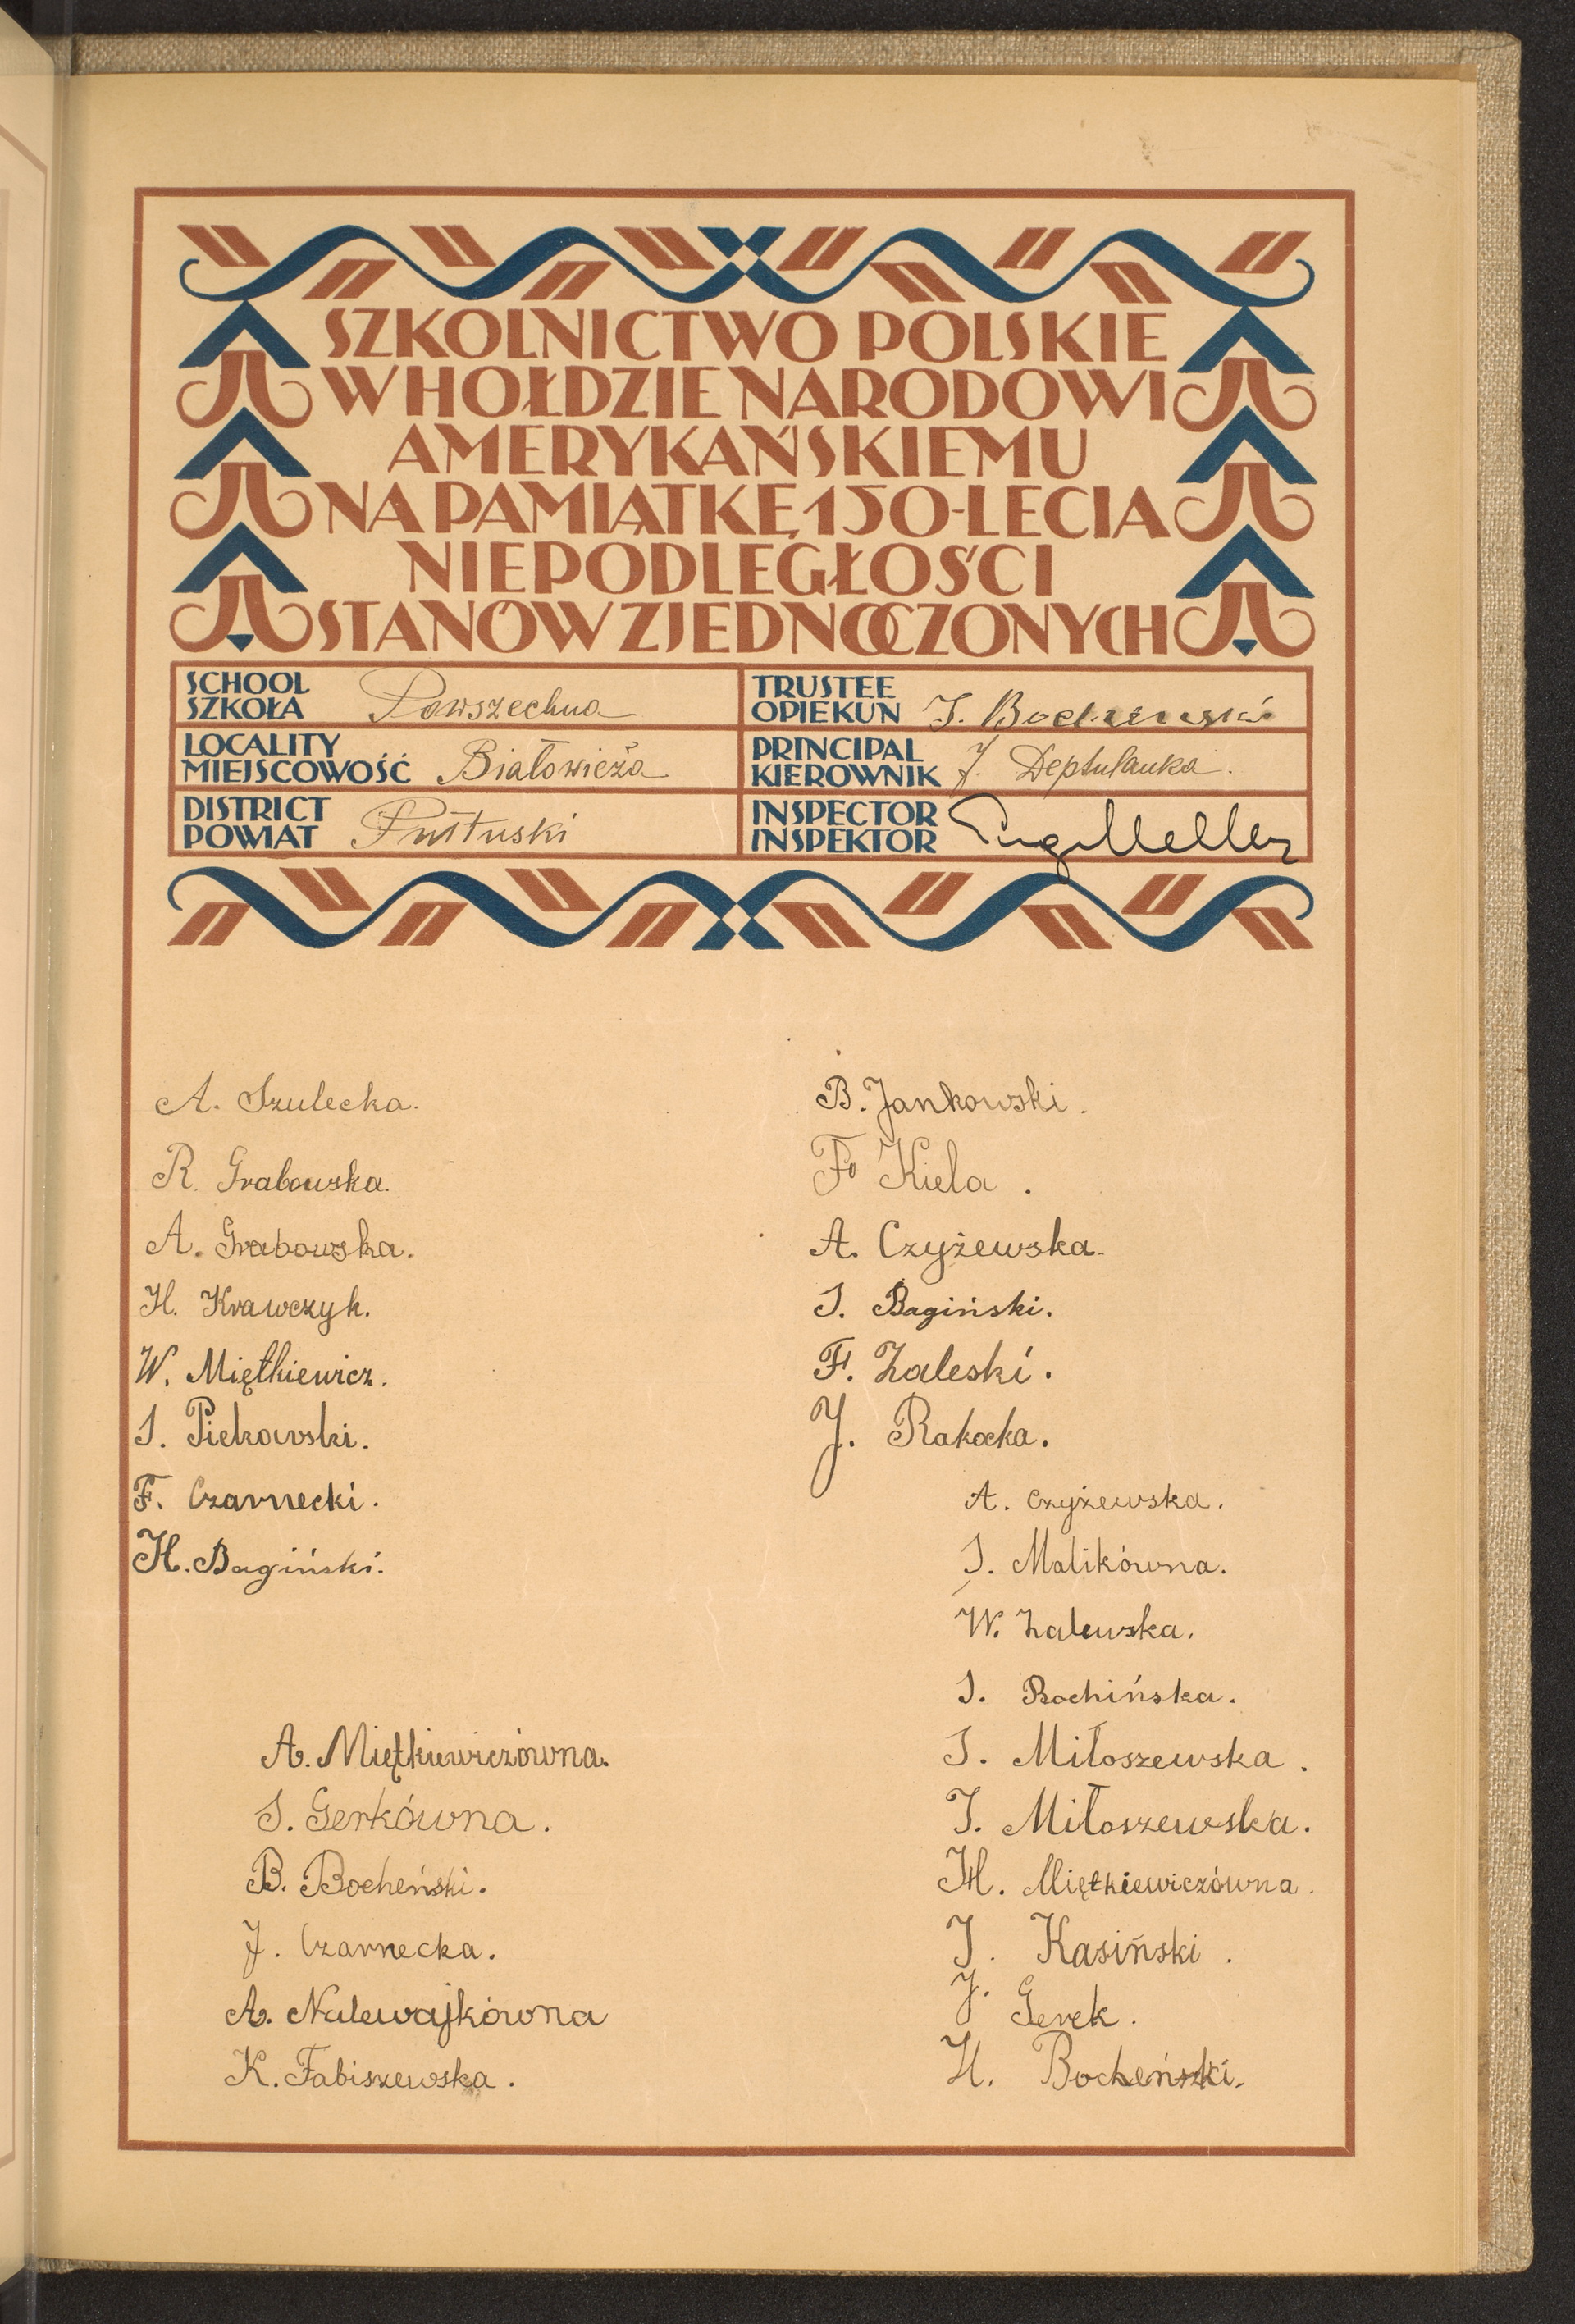 SZKOLNICTWO POLSKIE
W HOŁDZIE NARODOWI
AMERYKAŃSKIEMU
NA PAMIĄTKĘ 150-LECIA
NIEPODLEGŁOŚCI
STANÓW ZJEDNOCZONYCH
SCHOOL
SZKOŁA Powszechna
LOCALITY
MIEJSCOWOŚĆ Białowieża
DISTRICT
POWIAT Pułtuski
TRUSTEE
OPIEKUN J. Bochenski
PRINCIPAL
KIEROWNIK J. Deptulanka.
INSPECTOR
INSPEKTOR
A. Szulecka.
R. Grabowska.
A. Grabowska.
H. Krawczyk.
W. Miętkiewicz.
S. Piekowski.
F. Czarnecki.
H. Bagiński.
A. Miętkiewiczówna.
S. Gerkówna.
B. Bocheński.
J. Czarnecka.
A. Nalewajkówna
K. Fabiszewska.
B. Jankowski.
F. Kiela.
A. Czyżewska.
S. Bagiński.
F. Zaleski.
J. Rakocka.
A. Czyżewska.
S. Malikówna.
W. Zalewska.
S. Rochińska.
S. Miłoszewska.
J. Miłoszewska.
H. Miętkiewiczówna.
J. Kasiński.
J. Gerek.
H. Bocheński.